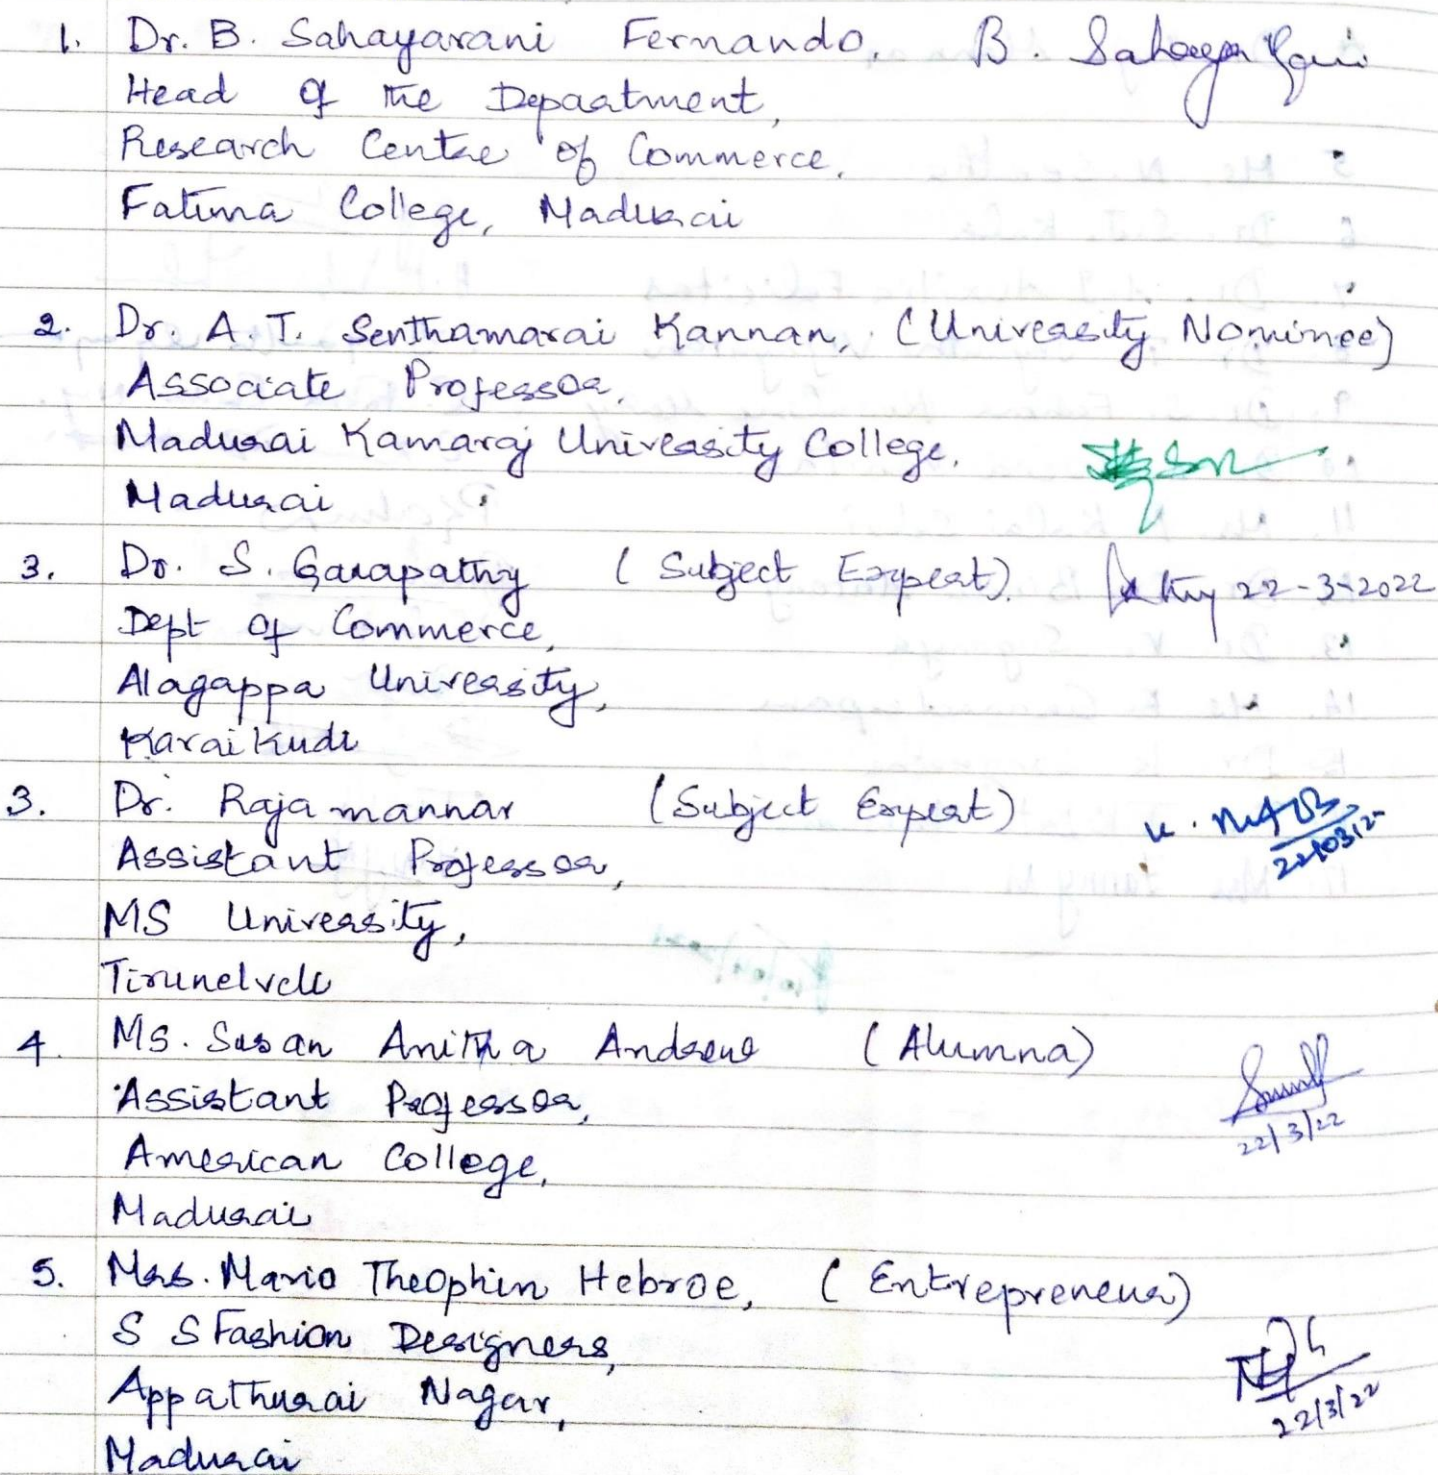 1. Dr. B. Sahayarani Fernando, B. Sahaya Rani
Head of the Department,
Research Centre of Commerce,
Fatima College, Madurai
2. Dr. A. T. Senthamarai Kannan, (University Nominee)
Associate Professor,
Madurai Kamaraj University College,
Madurai
3. Dr. S. Ganapathy (Subject Expert). 22-3-2022
Dept of Commerce,
Alagappa University,
Karaikudi
3. Dr. Rajamannar (Subject Expert)
Assistant Professor, 22/03/22
MS University,
Tirunelveli
4. Ms. Susan Anitha Andrew (Alumna)
Assistant Professor, 22/3/22
American College,
Madurai
5. Mrs. Mario Theophin Hebroe, (Entrepreneur)
S S Fashion Designers,
Appathurai Nagar, 22/3/22
Madurai